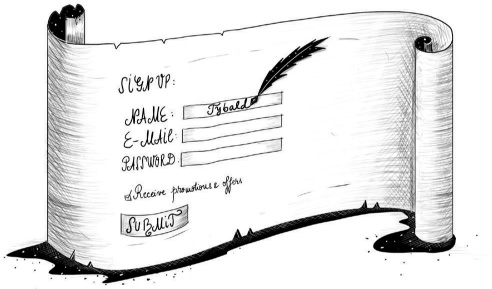 SIGN UP:
NAME: Tybald
E-MAIL:
PASSWORD:
Receive promotions & offers
SUBMIT